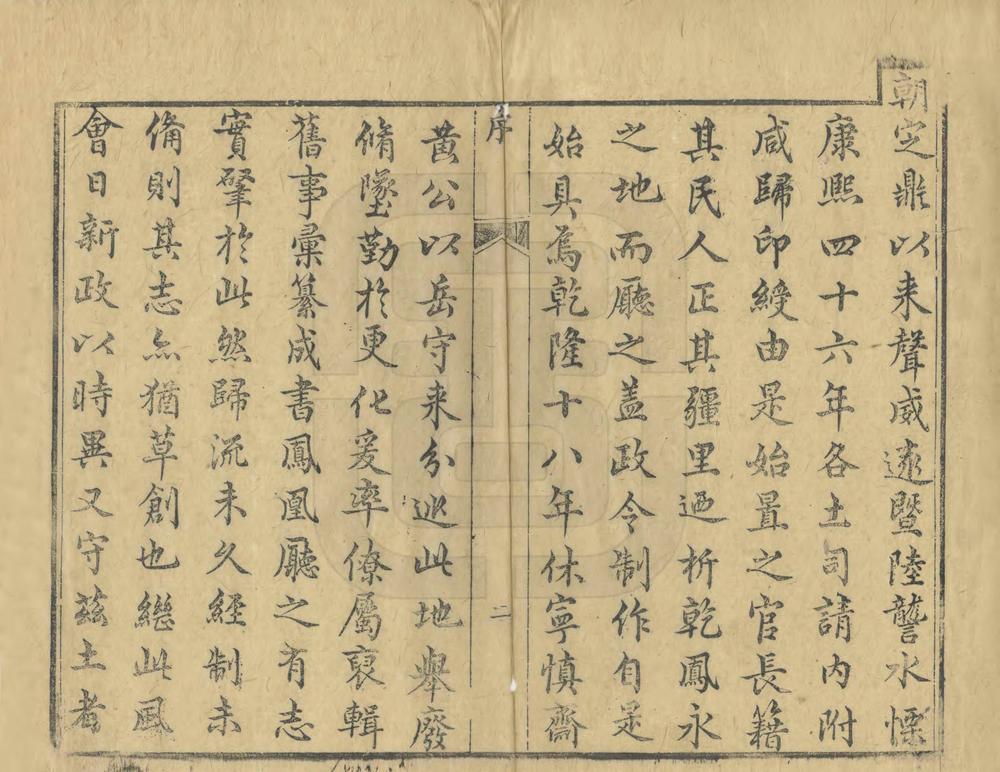 朝定鼎以来聲威遠暨陸讋水慄
康熙四十六年各土司請內附
咸歸印綬由是始置之官長籍
其民人正其疆里迺析乾鳳永
之地而廳之盖政令制作自是
始具焉乾隆十八年休寧慎齋
序
二
黄公以岳守来分巡此地舉廢
脩墜勤於更化爰率僚屬裒輯
舊事彙纂成書鳳凰廳之有志
實肇於此然歸流未久經制未
備則其志亦猶草創也繼此風
會日新政以時異又守茲土者